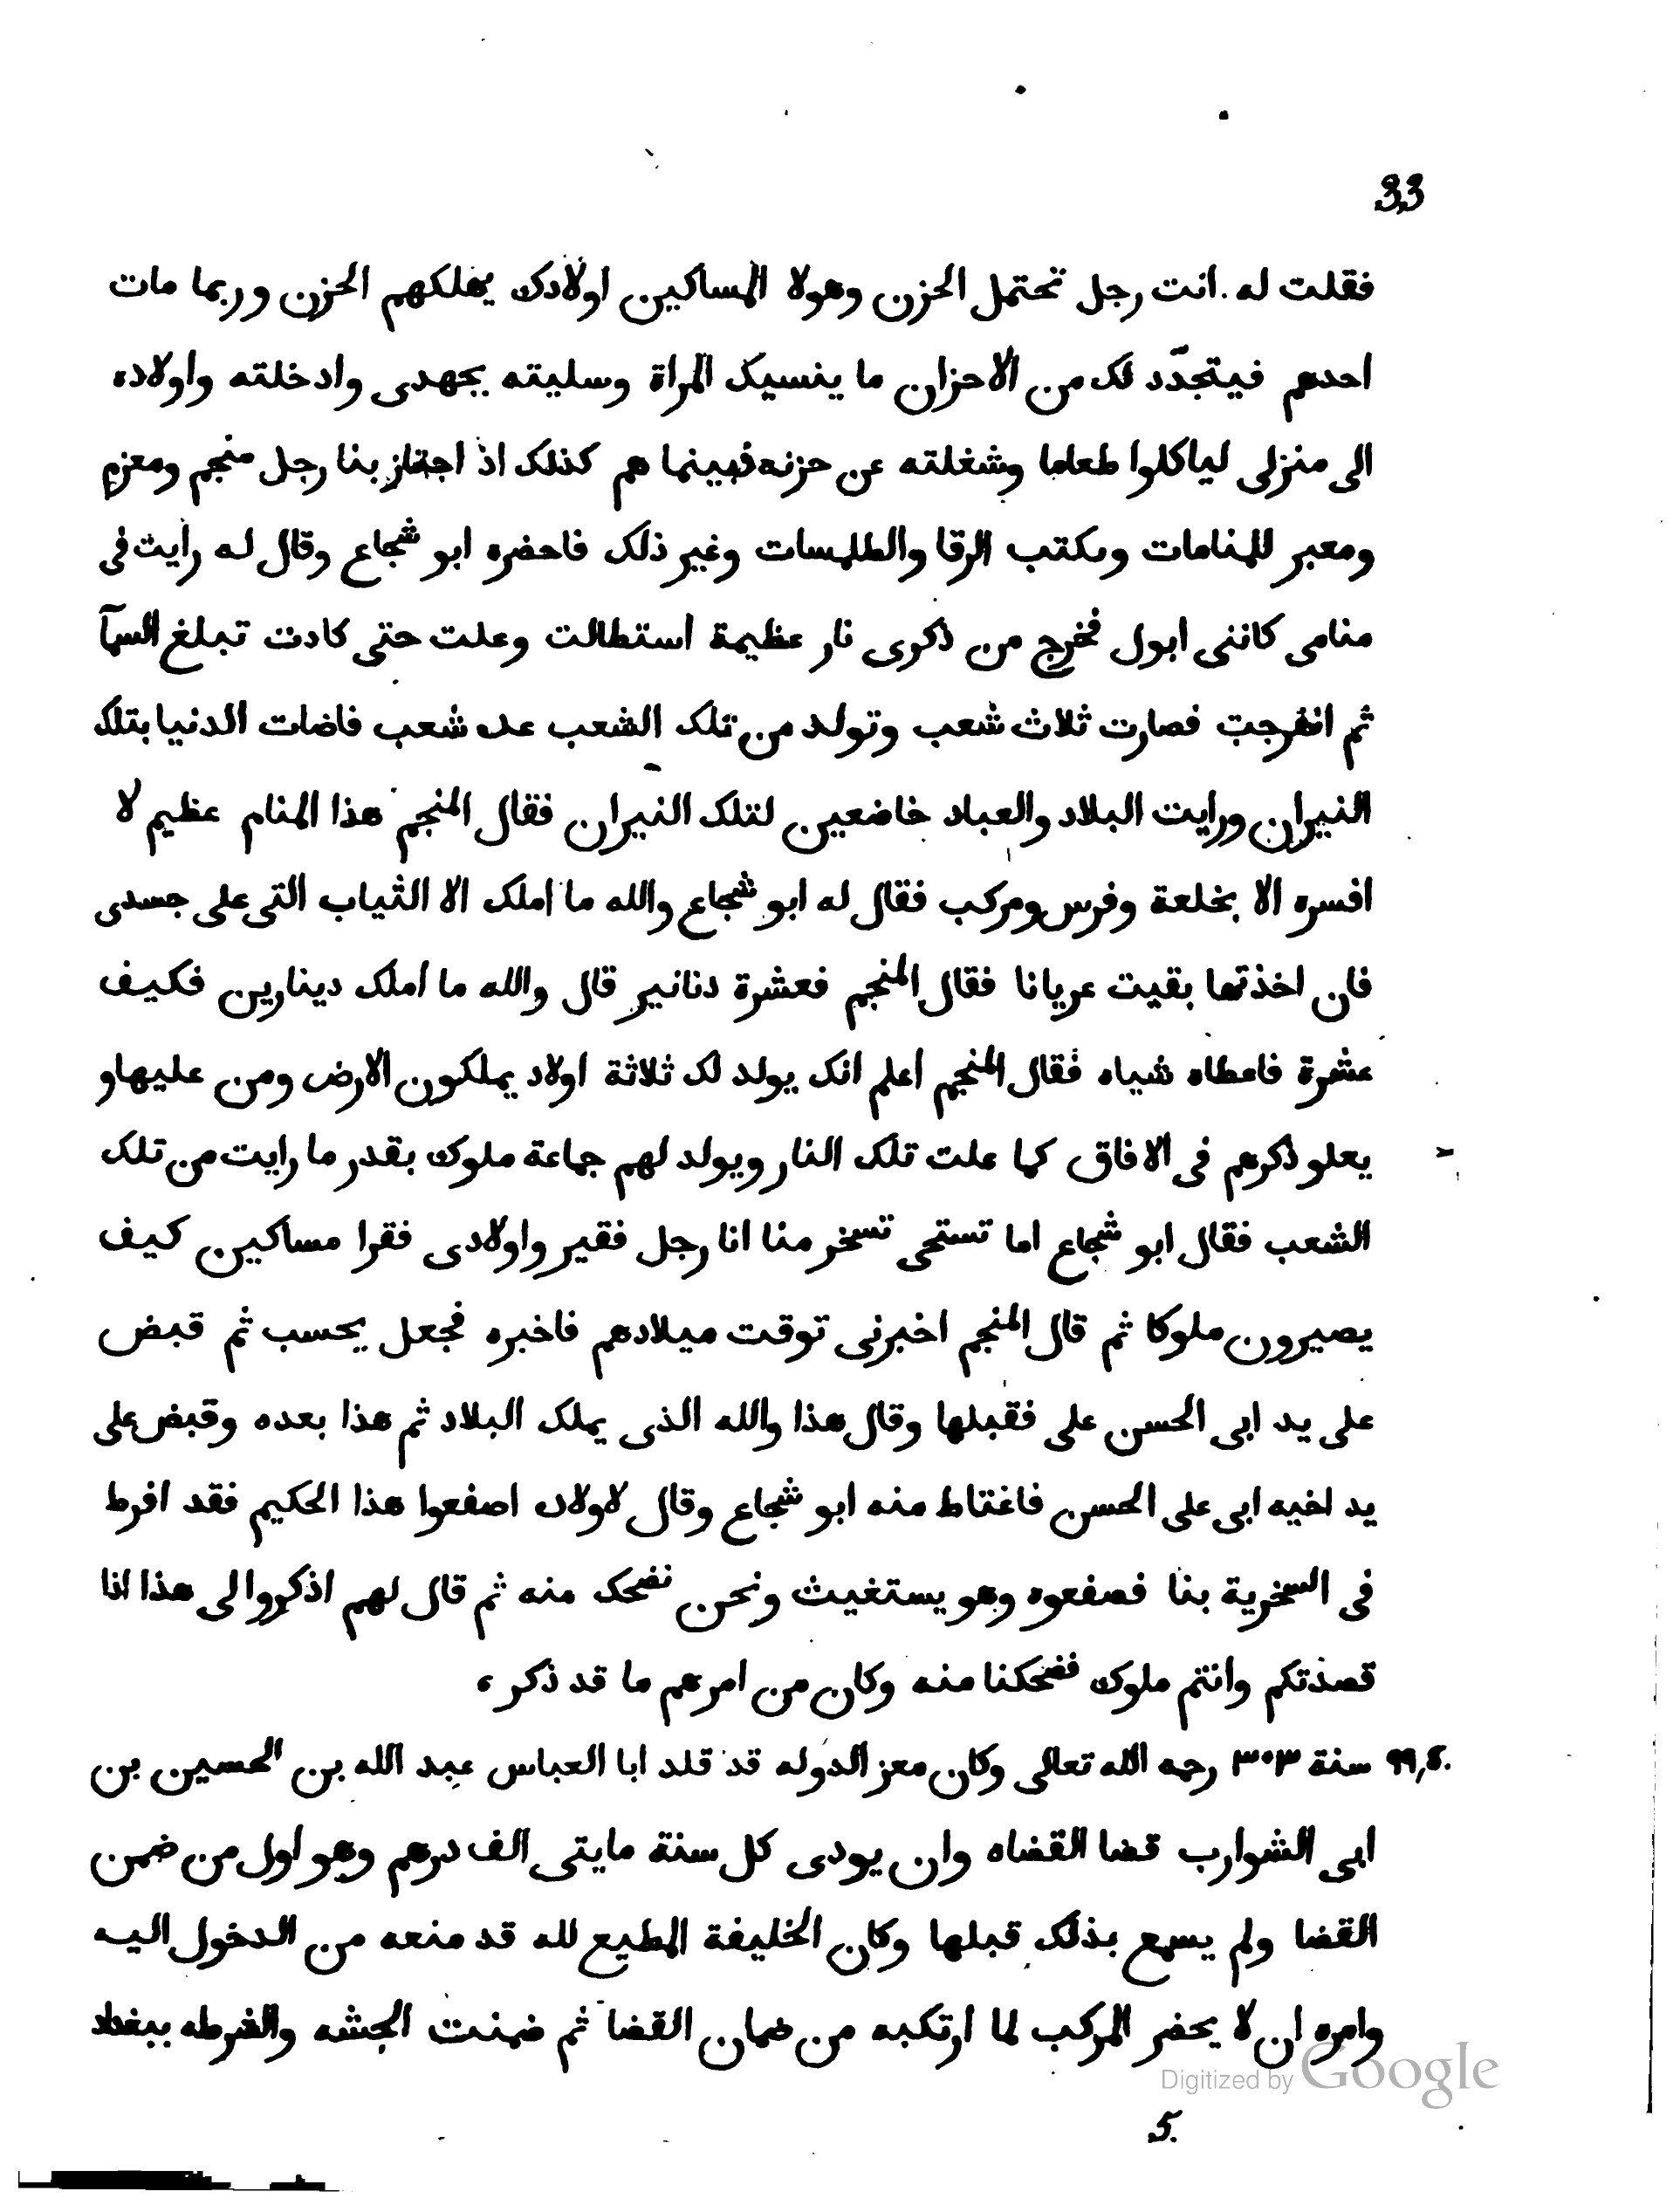 33
فقلت له انت رجل تحتمل الحزن وهولا المساكين اولادك يهلكهم الحزن وربما مات
احدهم فيتجدّد لك من الاحزان ما ينسيك المراة وسليته بجهدى وادخلته واولاده
الى منزلى لياكلوا طعاما وشغلته عن حزنه فبينما هم كذلك اذ اجتاز بنا رجل منجم ومعزم
ومعبر للمنامات ويكتب الرقا والطلسمات وغير ذلك فاحضره ابو شجاع وقال له رايت فى
منامى كاننى ابول فخرج من ذكرى نار عظيمة استطالت وعلت حتى كادت تبلغ السمآ
ثم انفرجت فصارت ثلاث شعب وتولد من تلك الشعب عده شعب فاضات الدنيا بتلك
النيران ورايت البلاد والعباد خاضعين لتلك النيران فقال المنجم هذا المنام عظيم لا
افسره الا بخلعة وفرس ومركب فقال له ابو شجاع والله ما املك الا الثياب التى على جسدى
فان اخذتها بقيت عريانا فقال المنجم فعشرة دنانير قال والله ما املك دينارين فكيف
عشرة فاعطاه شياه فقال المنجم اعلم انك يولد لك ثلاثة اولاد يملكون الارض ومن عليها و
يعلو ذكرهم فى الافاق كما علت تلك النار ويولد لهم جماعة ملوك بقدر ما رايت من تلك
الشعب فقال ابو شجاع اما تستحى تسخر منا انا رجل فقير واولادى فقرا مساكين كيف
يصيرون ملوكا ثم قال المنجم اخبرنى توقت ميلادهم فاخبره فجعل يحسب ثم قبض
على يد ابى الحسن على فقبلها وقال هذا والله الذى يملك البلاد ثم هذا بعده وقبض على
يد اخيه ابى على الحسن فاغتاط منه ابو شجاع وقال لاولاده اصفعوا هذا الحكيم فقد افرط
فى السخرية بنا فصفعوه وهو يستغيث ونحن نضحك منه ثم قال لهم اذكروا لى هذا اذا
قصذتكم وانتم ملوك فضحكنا منه وكان من امرهم ما قد ذكر،
سنة ٣٠٣ رحمه الله تعالى وكان معز الدوله قد قلد ابا العباس عبد الله بن الحسين بن
ابى الشوارب قضا القضاه وان يودى كل سنة مايتى الف درهم وهو اول من ضمن
القضا ولم يسمع بذلك قبلها وكان الخليفة المطيع لله قد منعه من الدخول اليه
وامره ان لا يحضر المركب لما ارتكبه من ضمان القضا ثم ضمنت الحبشه والشرطه ببغداد
Digitized by Google
5.